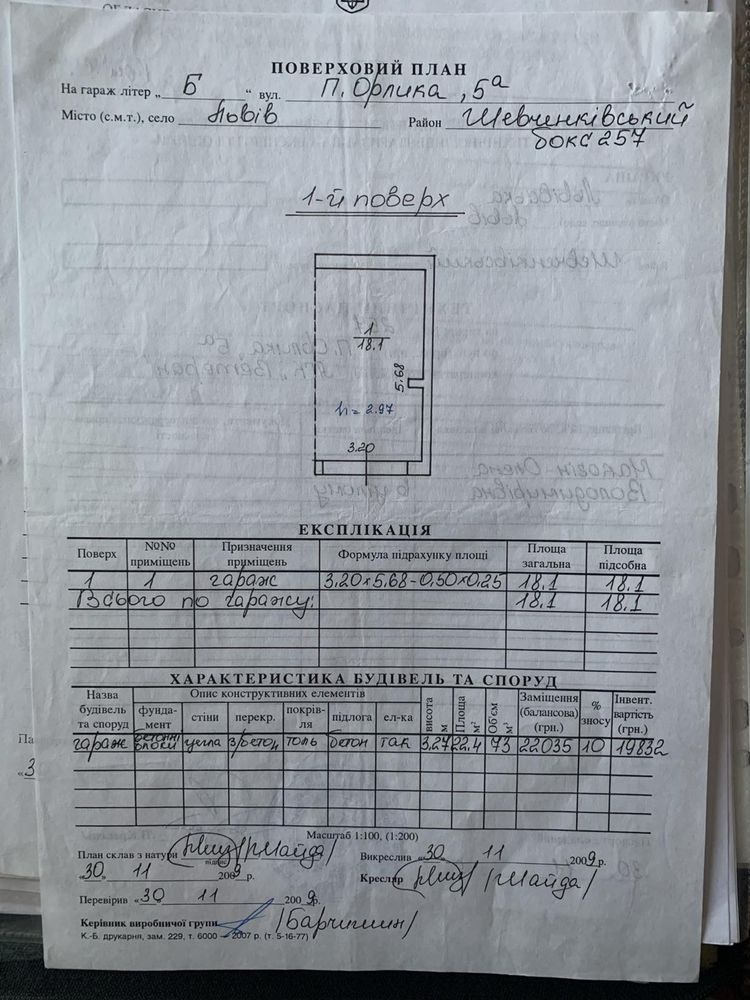 ПОВЕРХОВИЙ ПЛАН
На гараж літер „ Б “ вул. П. Орлика, 5а
Місто (с.м.т.), село Львів Район Шевченківський
бокс 257
1-й поверх
1
18.1
5.68
h = 2.97
3.20
ЕКСПЛІКАЦІЯ
Поверх №№ приміщень Призначення приміщень Формула підрахунку площі Площа загальна Площа підсобна
1 1 гараж 3.20×5.68-0.50×0.25 18.1 18.1
Всього по гаражу: 18.1 18.1
ХАРАКТЕРИСТИКА БУДІВЕЛЬ ТА СПОРУД
Назва будівель та споруд Опис конструктивних елементів висота м Площа м² Об'єм м³ Заміщення (балансова) (грн.) % зносу Інвент. вартість (грн.)
фунда-мент стіни перекр. покрів-ля підлога ел-ка
гараж бетонні блоки цегла з/бетон толь бетон так 3.27 22.4 73 22035 10 19832
Масштаб 1:100, (1:200)
План склав з натури /Майда/ Викреслив «30» 11 2009 р.
підпис
«30» 11 2009 р. Кресляр /Майда/
Перевірив «30» 11 2009 р.
Керівник виробничої групи
К.-Б. друкарня, зам. 229, т. 6000 — 2007 р. (т. 5-16-77)